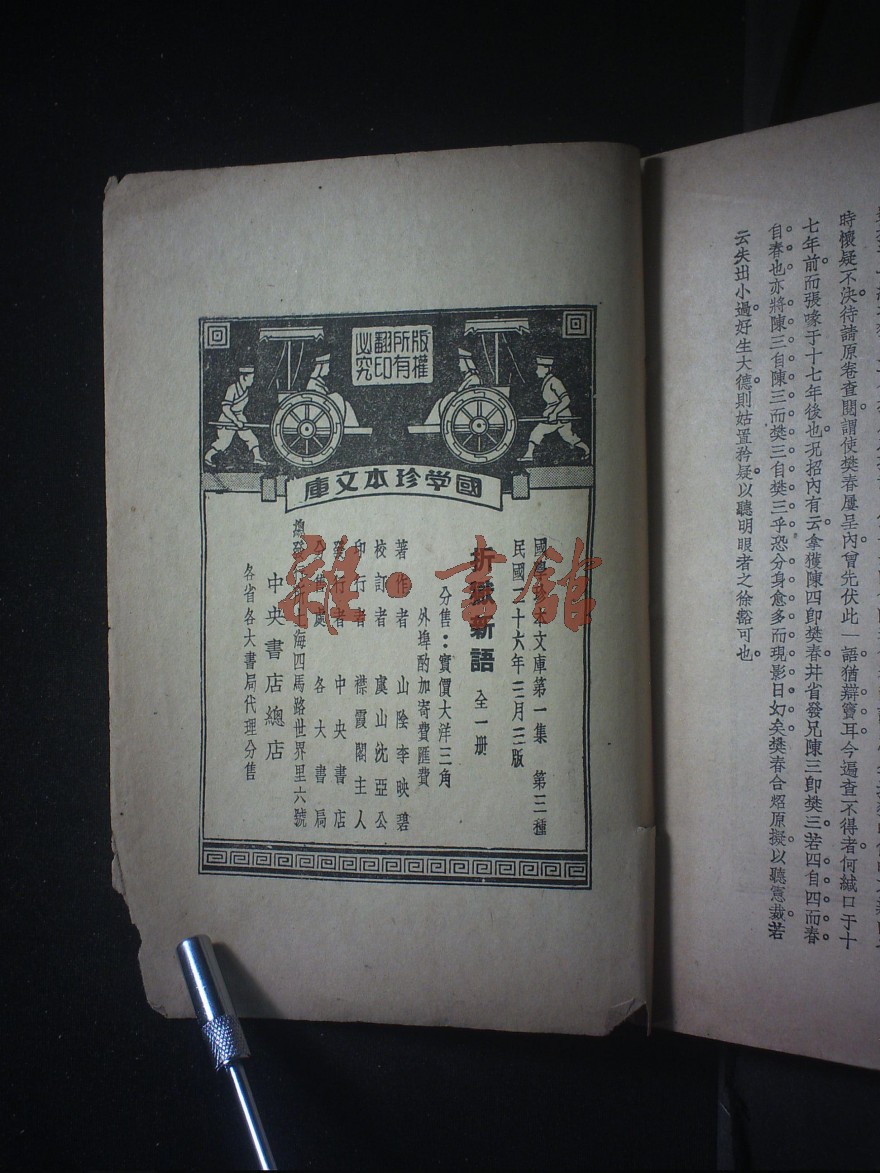 時懷疑不決待請原卷查閱謂使樊春屢呈內曾先伏此一語猶辯竇耳今遍查不得者何緘口于十
七年前而張喙于十七年後也况招內有云拿獲陳四卽樊春幷省發兄陳三卽樊三若四自四而春
自春也亦將陳三自陳三而樊三自樊三乎恐分身愈多而現影日幻矣樊春合炤原擬以聽憲裁若
云失出小過好生大德則姑置矜疑以聽明眼者之徐豁可也
版權
所有
翻印
必究
國學珍本文庫
國學珍本文庫第一集 第三種
民國二十六年三月三版
折獄新語 全一册
分售：實價大洋三角
外埠酌加寄費匯費
著作者 山陰李映碧
校訂者 虞山沈亞公
印行者 襟霞閣主人
發行者 中央書店
分售處 各大書局
海四馬路世界里六號
中央書店總店
各省各大書局代理分售
雜·書館